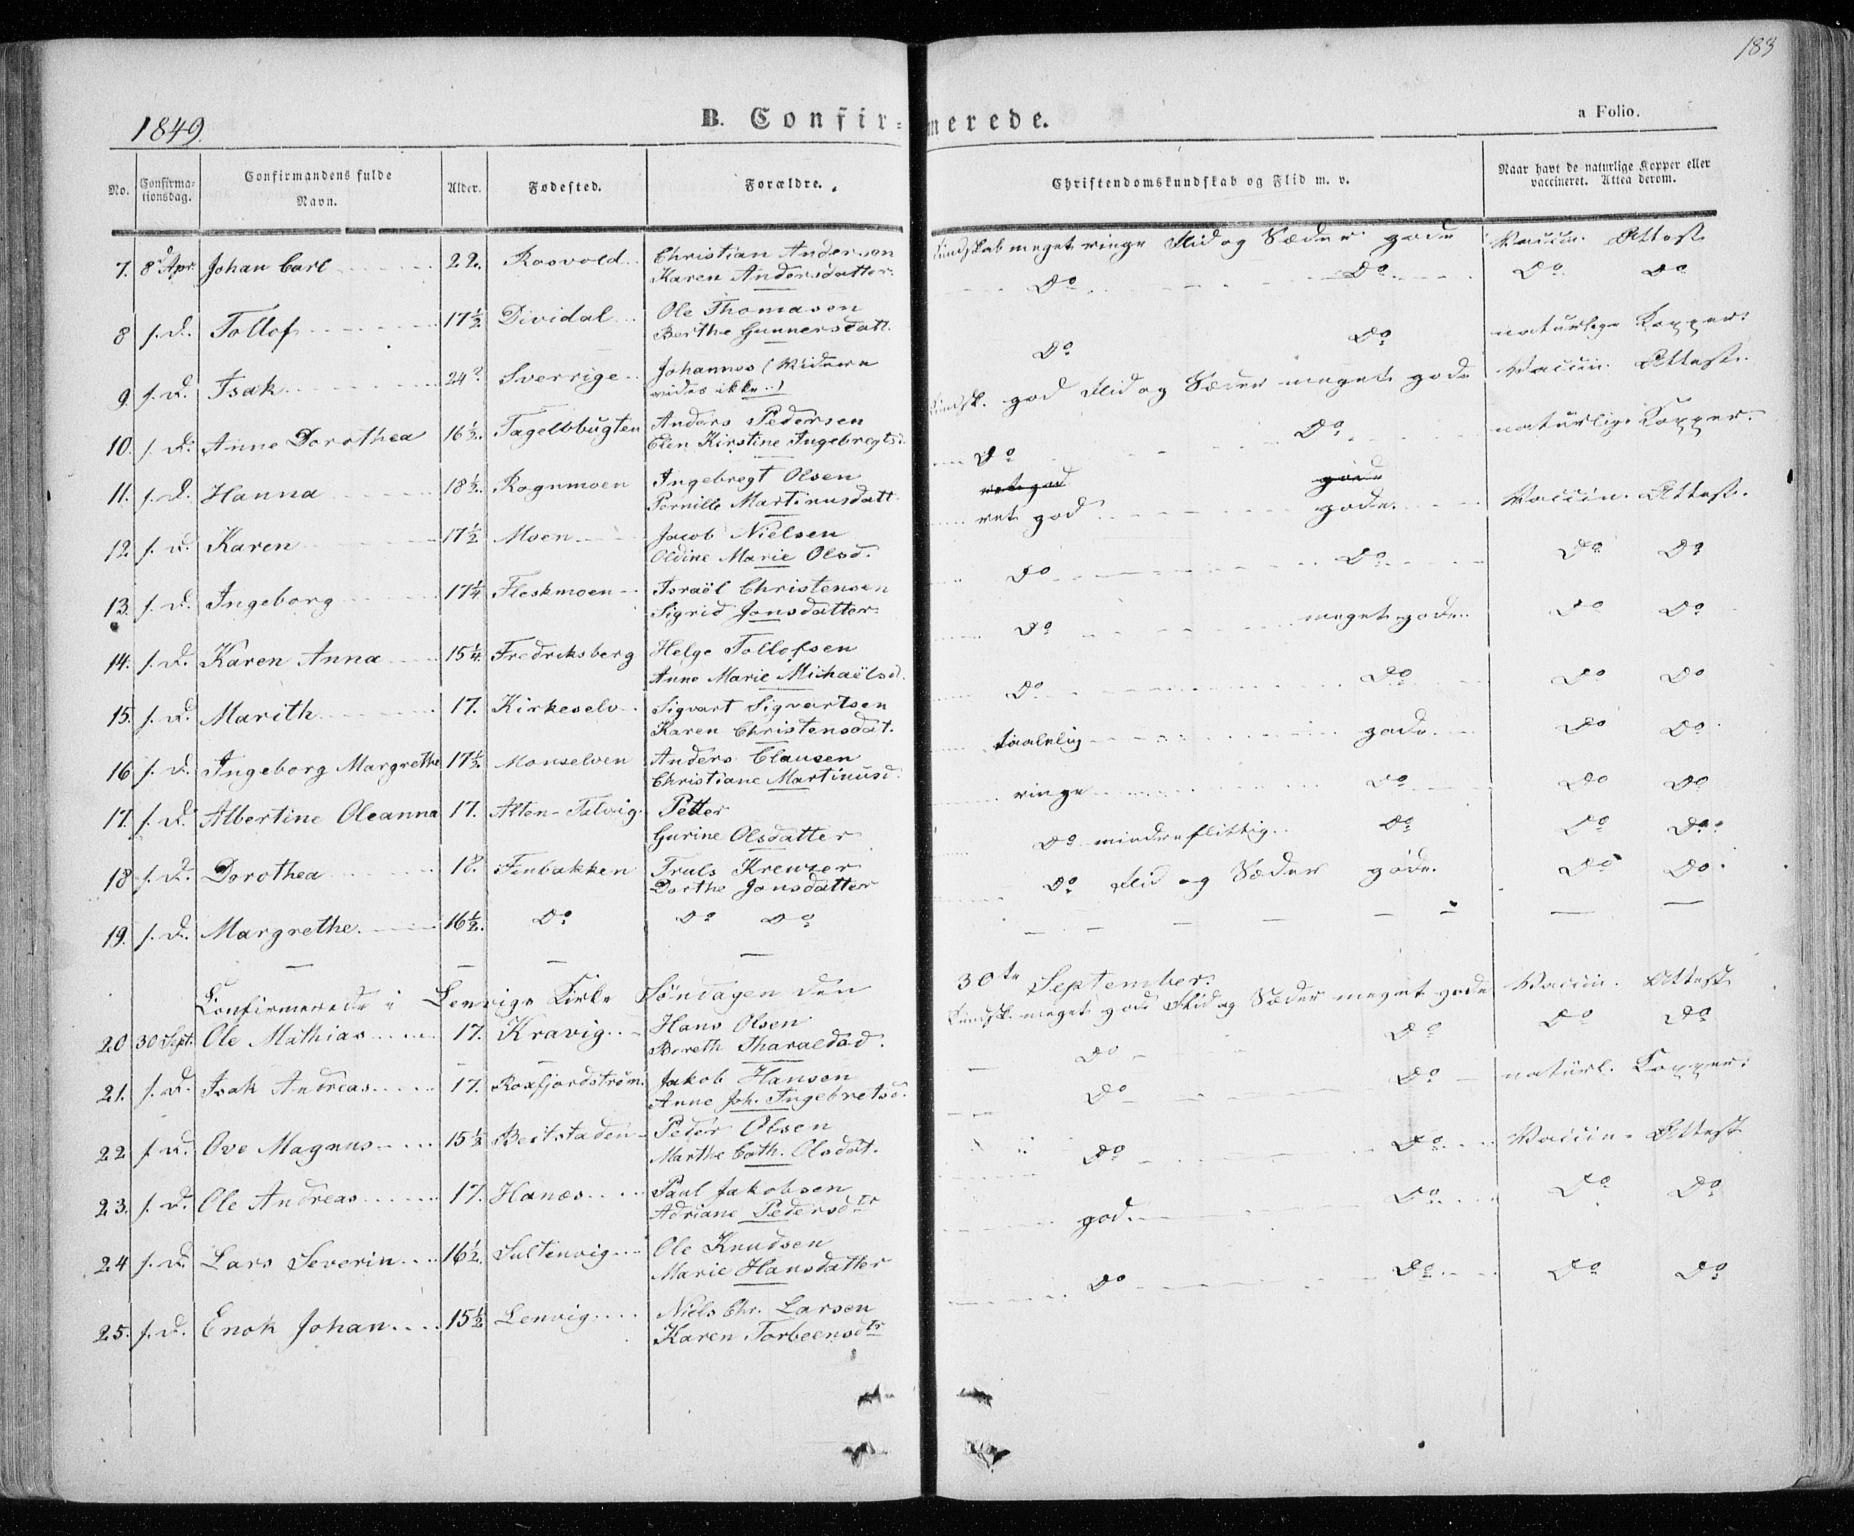 183
1849.
B. Confirmerede.
a Folio.
No. Confirmationsdag. Confirmandens fulde Navn. Alder. Fødested. Forældre. Christendomskundskab og Flid m. v. Naar havt de naturlige Kopper eller vaccineret. Attea derom.
7. 8d Apr. Johan Carl 22. Rosvold Christian Andersen Kundskab meget ringe Flid og Sæder gode Vaccin. Attest
Karen Andersdatter
8 s. D. Tollof 17½ Dividal Ole Thomasen Do Do Do Do
Berthe Gunnersdatt.
9. s. D. Isak 24? Sverrige Johannes (Videre Do Do naturlige Kopper.
vides ikke..)
10. s. D. Anne Dorothea 16½. Tagelvbugten Anders Pedersen Kundsk. god Flid og Sæder meget gode Vaccin. Attest.
Elen Kirstine Ingebregtsd.
11. s. D. Hanna 18½. Rognmoen Ingebregt Olsen Do Do naturlige Kopper
Pernille Martinusdatt.
ret god gode
12. s. D. Karen 17½ Moen Jacob Nielsen ret god gode. Vaccin. Attest.
Oldine Marie Olsd.
13. s. D. Ingeborg 17¼ Fleskmoen Israël Christensen Do Do Do Do
Sigrid Jonsdatter
14. s. D. Karen Anna 15¼. Fredriksberg Helge Tollofsen Do meget gode. Do Do
Anne Marie Michaëlsd.
15. s. D. Marith 17. Kirkeselv Sigvart Sigvartsen Do Do Do Do
Karen Christensdat.
16 s. D. Ingeborg Margrethe 17½. Monselven Anders Clausen taalelig gode. Do Do
Christiane Martinusd.
17. s. D. Albertine Oleanna 17. Alten-Talvig. Petter ringe Do Do Do
Gurine Olsdatter
18 s. D. Dorothea 18. Finbakken Truls Kreutzer Do mindre flittig. Do Do Do
Dorthe Jonsdatter
19. s. D. Margrethe 16½. Do Do Do Do Flid og Sæder gode. Do Do
Confirmerede i Lenvigs Kirke Søndagen den 30te September.
20 30 Sept. Ole Mathias 17. Kravig Hans Olsen Kundsk. meget god Flid og Sæder meget gode Vaccin. Attest
Bereth Tharaldsd.
21. s. D. Isak Andreas 17. Roxfjordstrøm. Jakob Hansen Do Do Do Do
Anne Joh. Ingebretsd.
22 s. D. Ove Magnus 15½ Bertstaden Peder Olsen Do Do naturl. Kopper.
Marthe Cath. Olsdat.
23. s. D. Ole Andreas 17. Hanæs Paul Jakobsen Do Do Vaccin. Attest
Adriane Pedersdtr
24 s. D. Lars Severin 16½ Sultinvig Ole Knudsen god. Do Do Do
Marie Hansdatter
25. s. D. Enok Johan 15½ Lenvig Niels Chr. Larsen Do Do Do Do
Karen Torbeensdtr